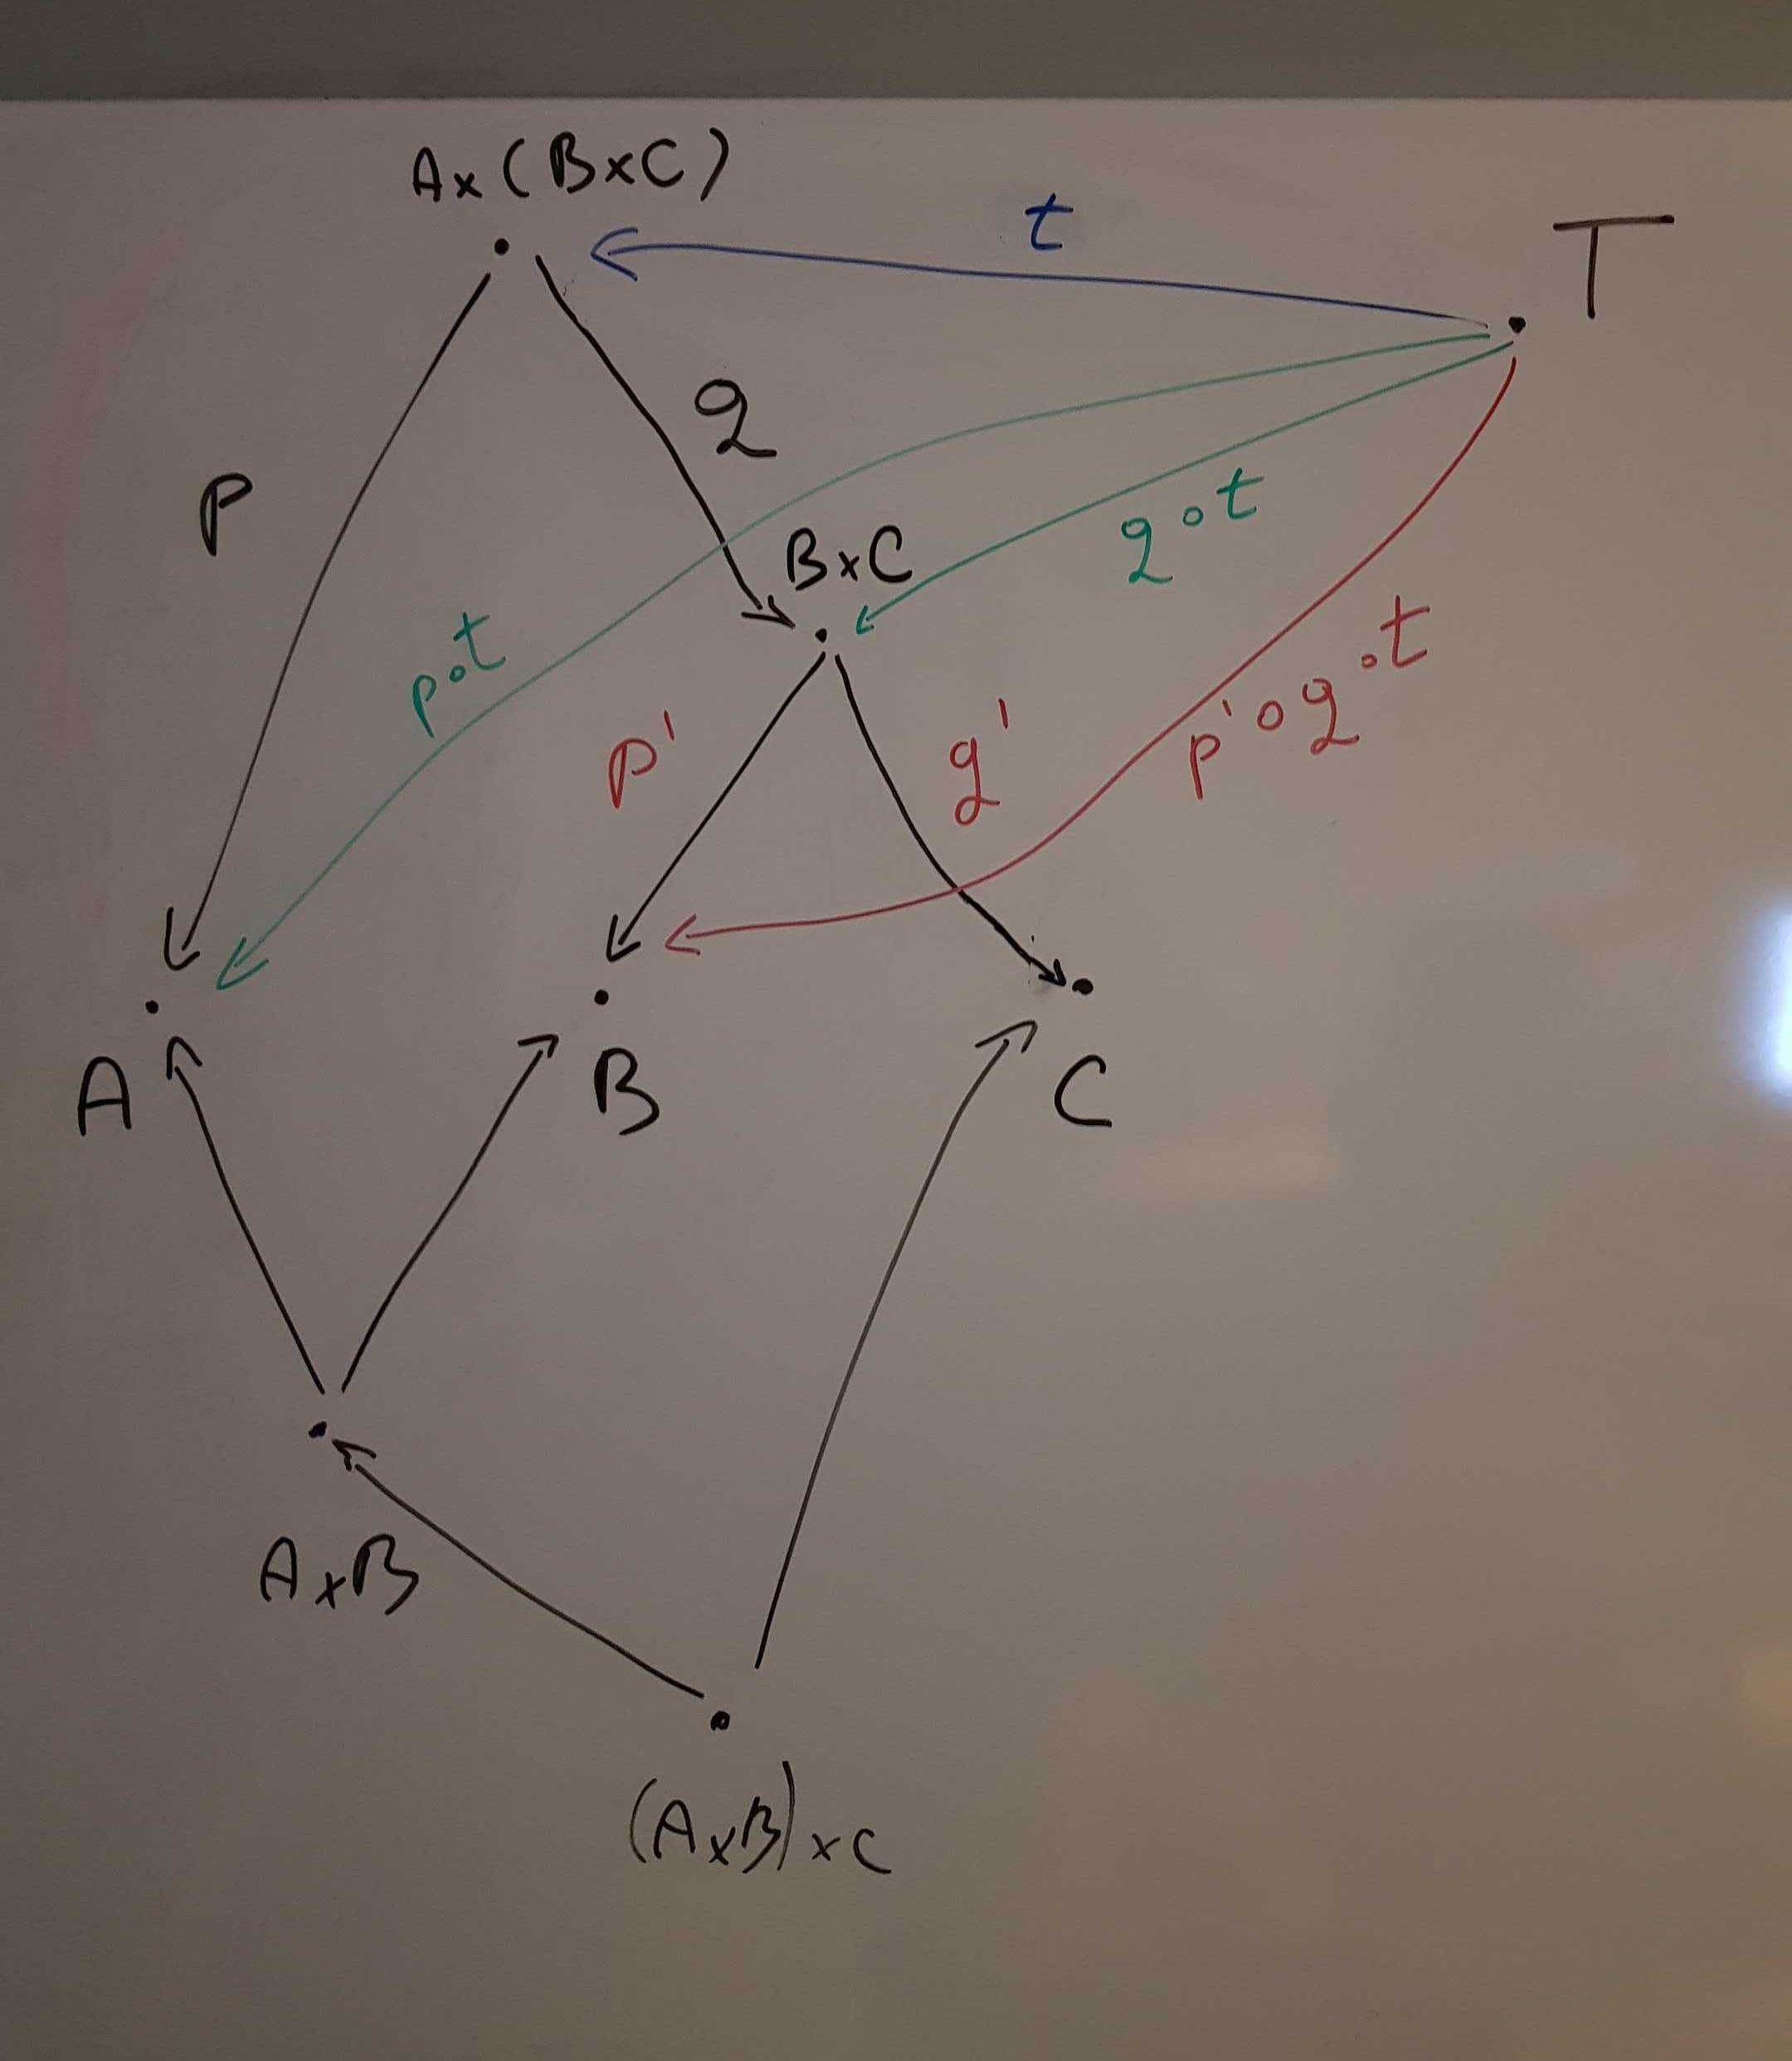 A×(B×C)
t
T
q
P
B×C
q∘t
p∘t
p'
q'
p'∘q∘t
A
B
C
A×B
(A×B)×C